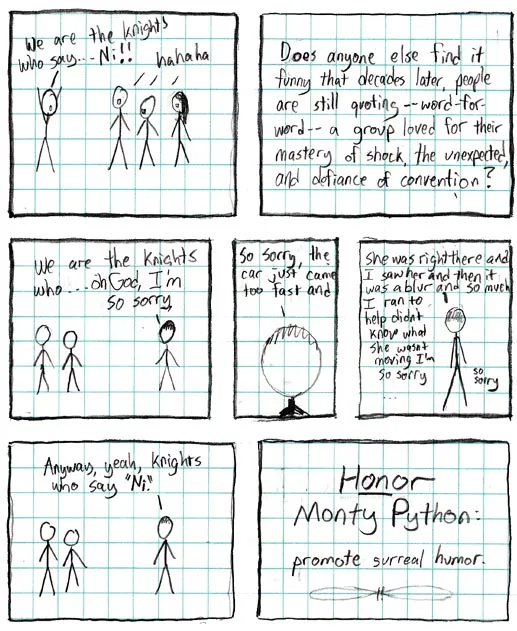 We are the knights
who say...Ni!!
hahaha
Does anyone else find it
funny that decades later, people
are still quoting--word-for-
word-- a group loved for their
mastery of shock, the unexpected,
and defiance of convention?
We are the knights
who...oh God, I'm
so sorry
So sorry, the
car just came
too fast and
She was right there and
I saw her and then it
was a blur and so much
I ran to
help didn't
know what
she wasn't
moving I'm
so sorry
...
so
sorry
Anyway, yeah, knights
who say "Ni!"
Honor
Monty Python:
promote surreal humor.